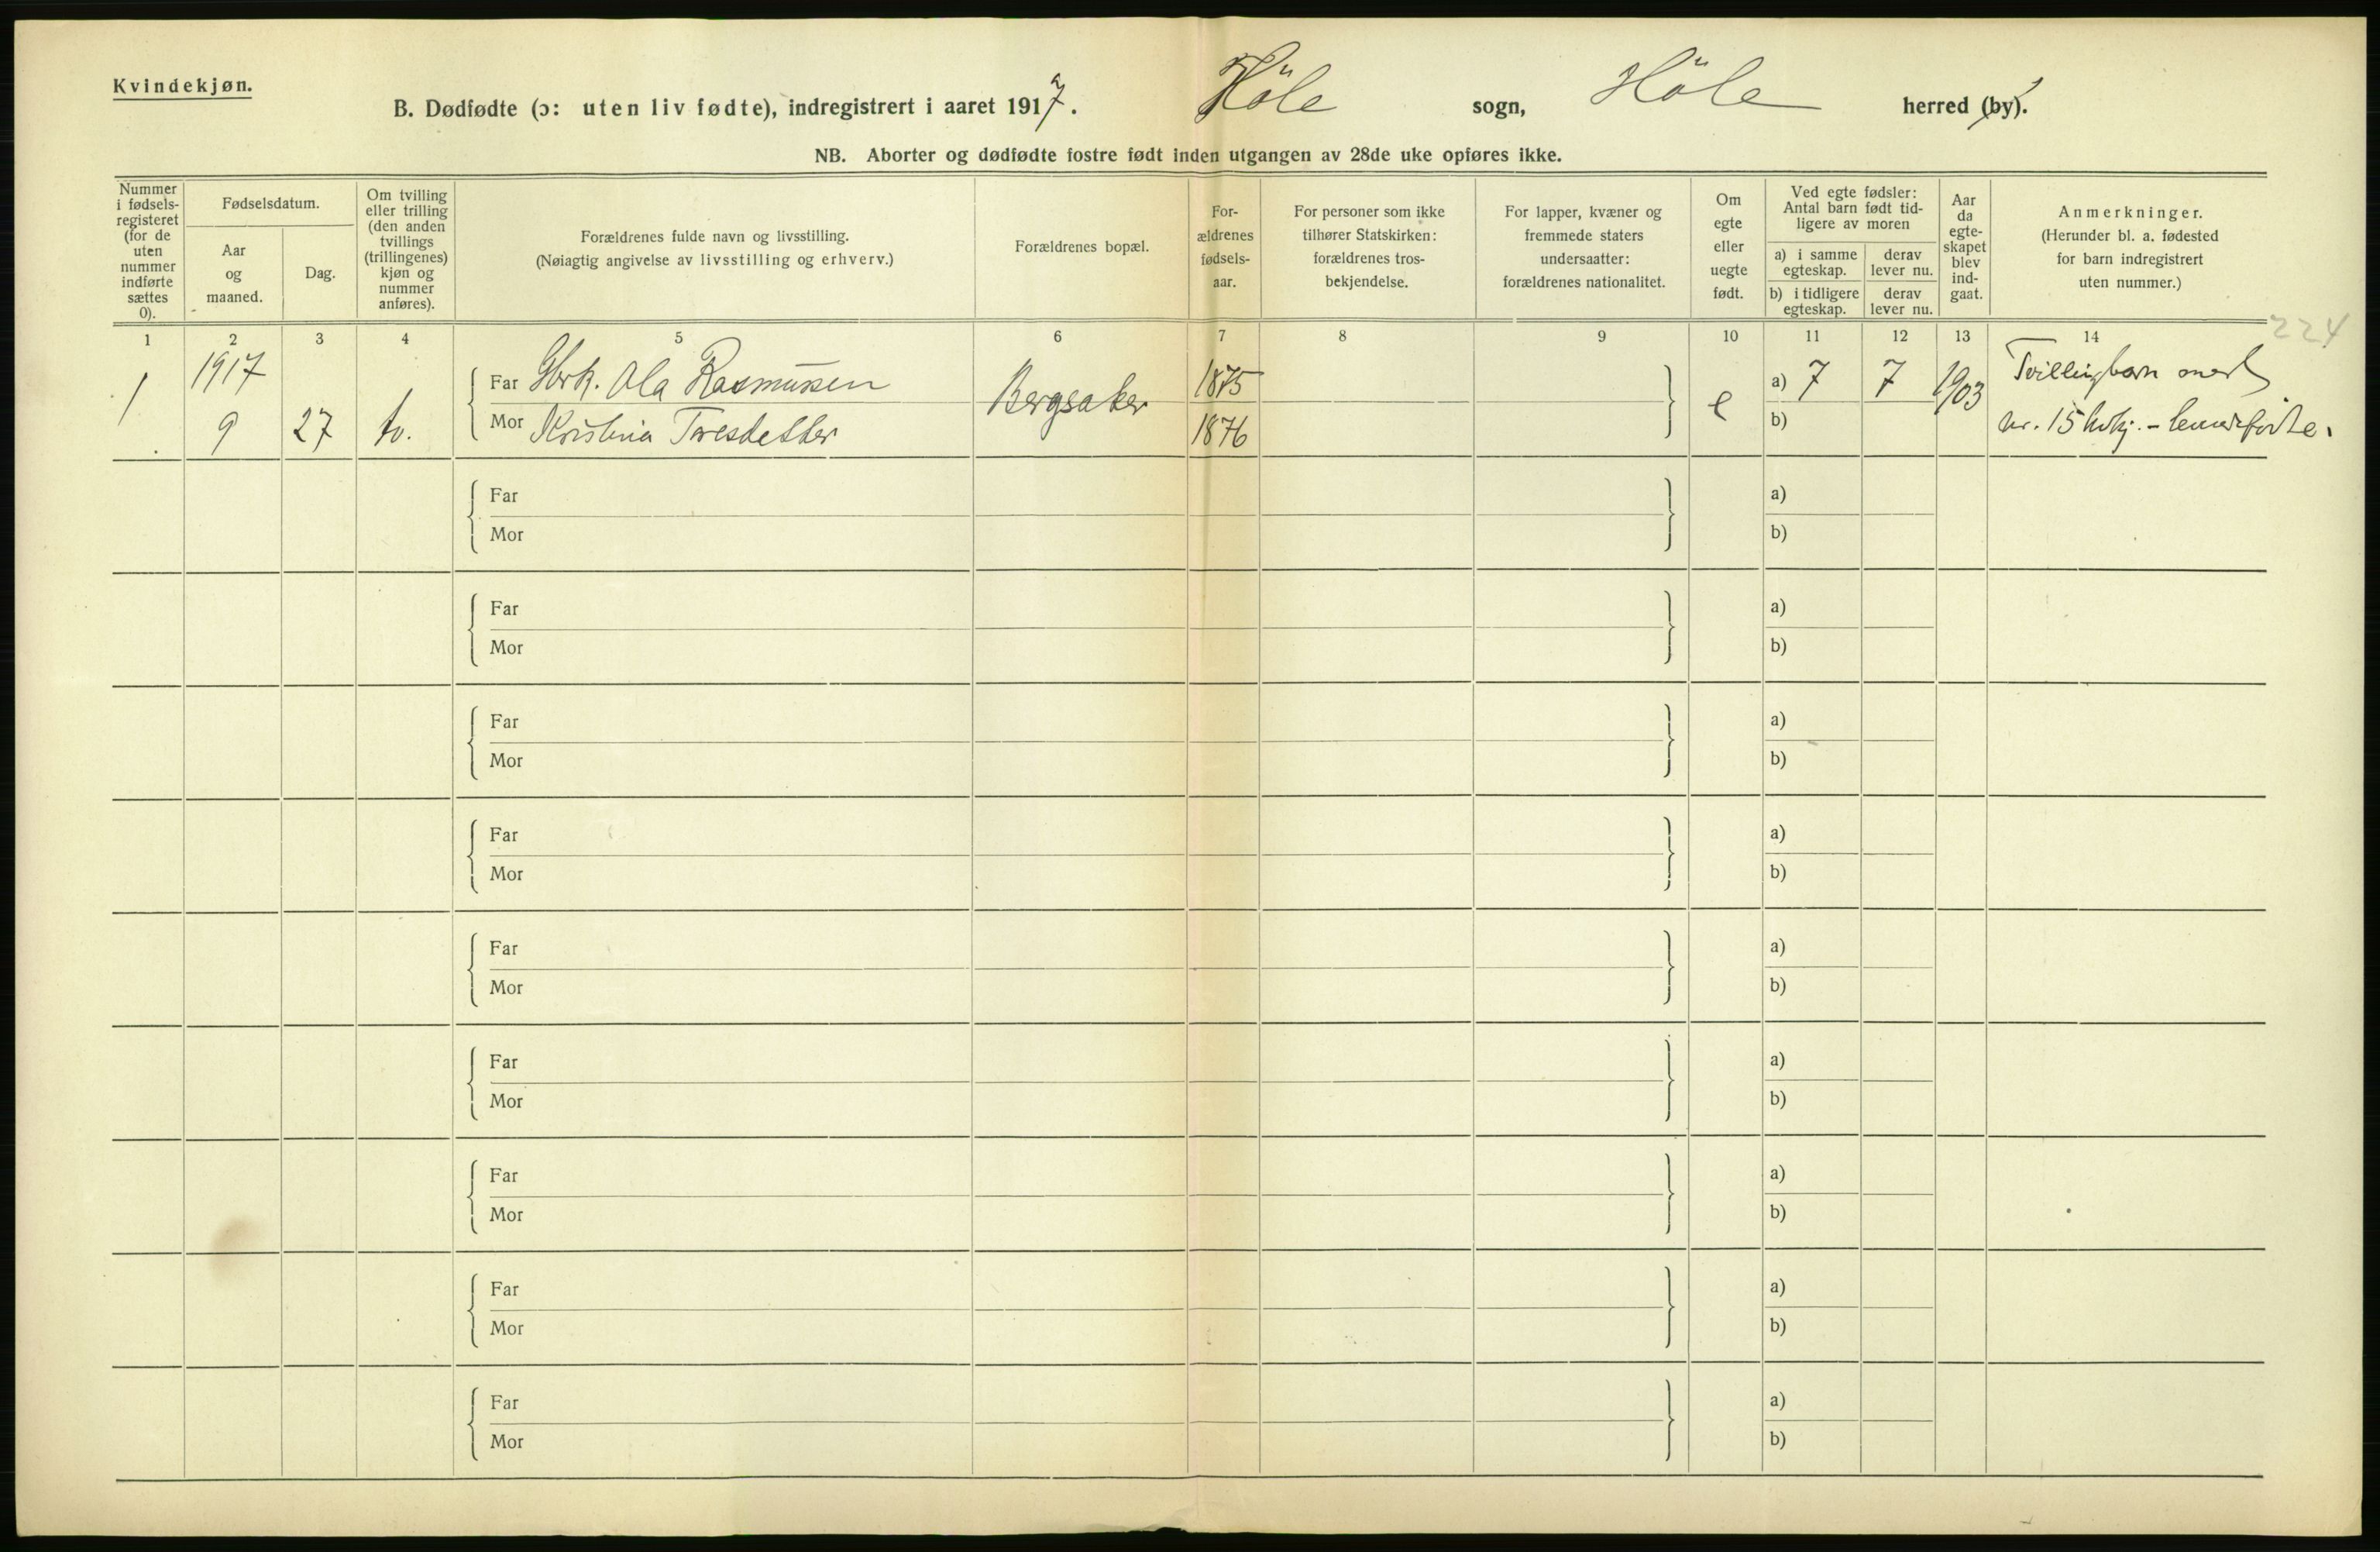 Kvindekjøn.
B. Dødfødte (ɔ: uten liv fødte), indregistrert i aaret 1917. Höle sogn, Höle herred (by).
NB. Aborter og dødfødte fostre født inden utgangen av 28de uke opføres ikke.
Nummer i fødsels-registeret (for de uten nummer indførte sættes 0).
Fødselsdatum.
Aar og maaned.
Dag.
Om tvilling eller trilling (den anden tvillings (trillingenes) kjøn og nummer anføres).
Forældrenes fulde navn og livsstilling.
(Nøiagtig angivelse av livsstilling og erhverv.)
Forældrenes bopæl.
For-ældrenes fødsels-aar.
For personer som ikke tilhører Statskirken: forældrenes tros-bekjendelse.
For lapper, kvæner og fremmede staters undersaatter: forældrenes nationalitet.
Om egte eller uegte født.
Ved egte fødsler: Antal barn født tid-ligere av moren
a) i samme egteskap.
derav lever nu.
b) i tidligere egteskap.
derav lever nu.
Aar da egte-skapet blev ind-gaat.
Anmerkninger.
(Herunder bl. a. fødested for barn indregistrert uten nummer.)
1 2 3 4 5 6 7 8 9 10 11 12 13 14
224
1 1917 9 27 tv.
Far Gbrk. Ola Rasmussen
Mor Kristina Toresdetter
Bergsaker
1875
1876
e
a) 7 7 1903
b)
Tvillingbarn med
nr. 15 kvkj. -
Far a)
Mor b)
Far a)
Mor b)
Far a)
Mor b)
Far a)
Mor b)
Far a)
Mor b)
Far a)
Mor b)
Far a)
Mor b)
Far a)
Mor b)
Far a)
Mor b)